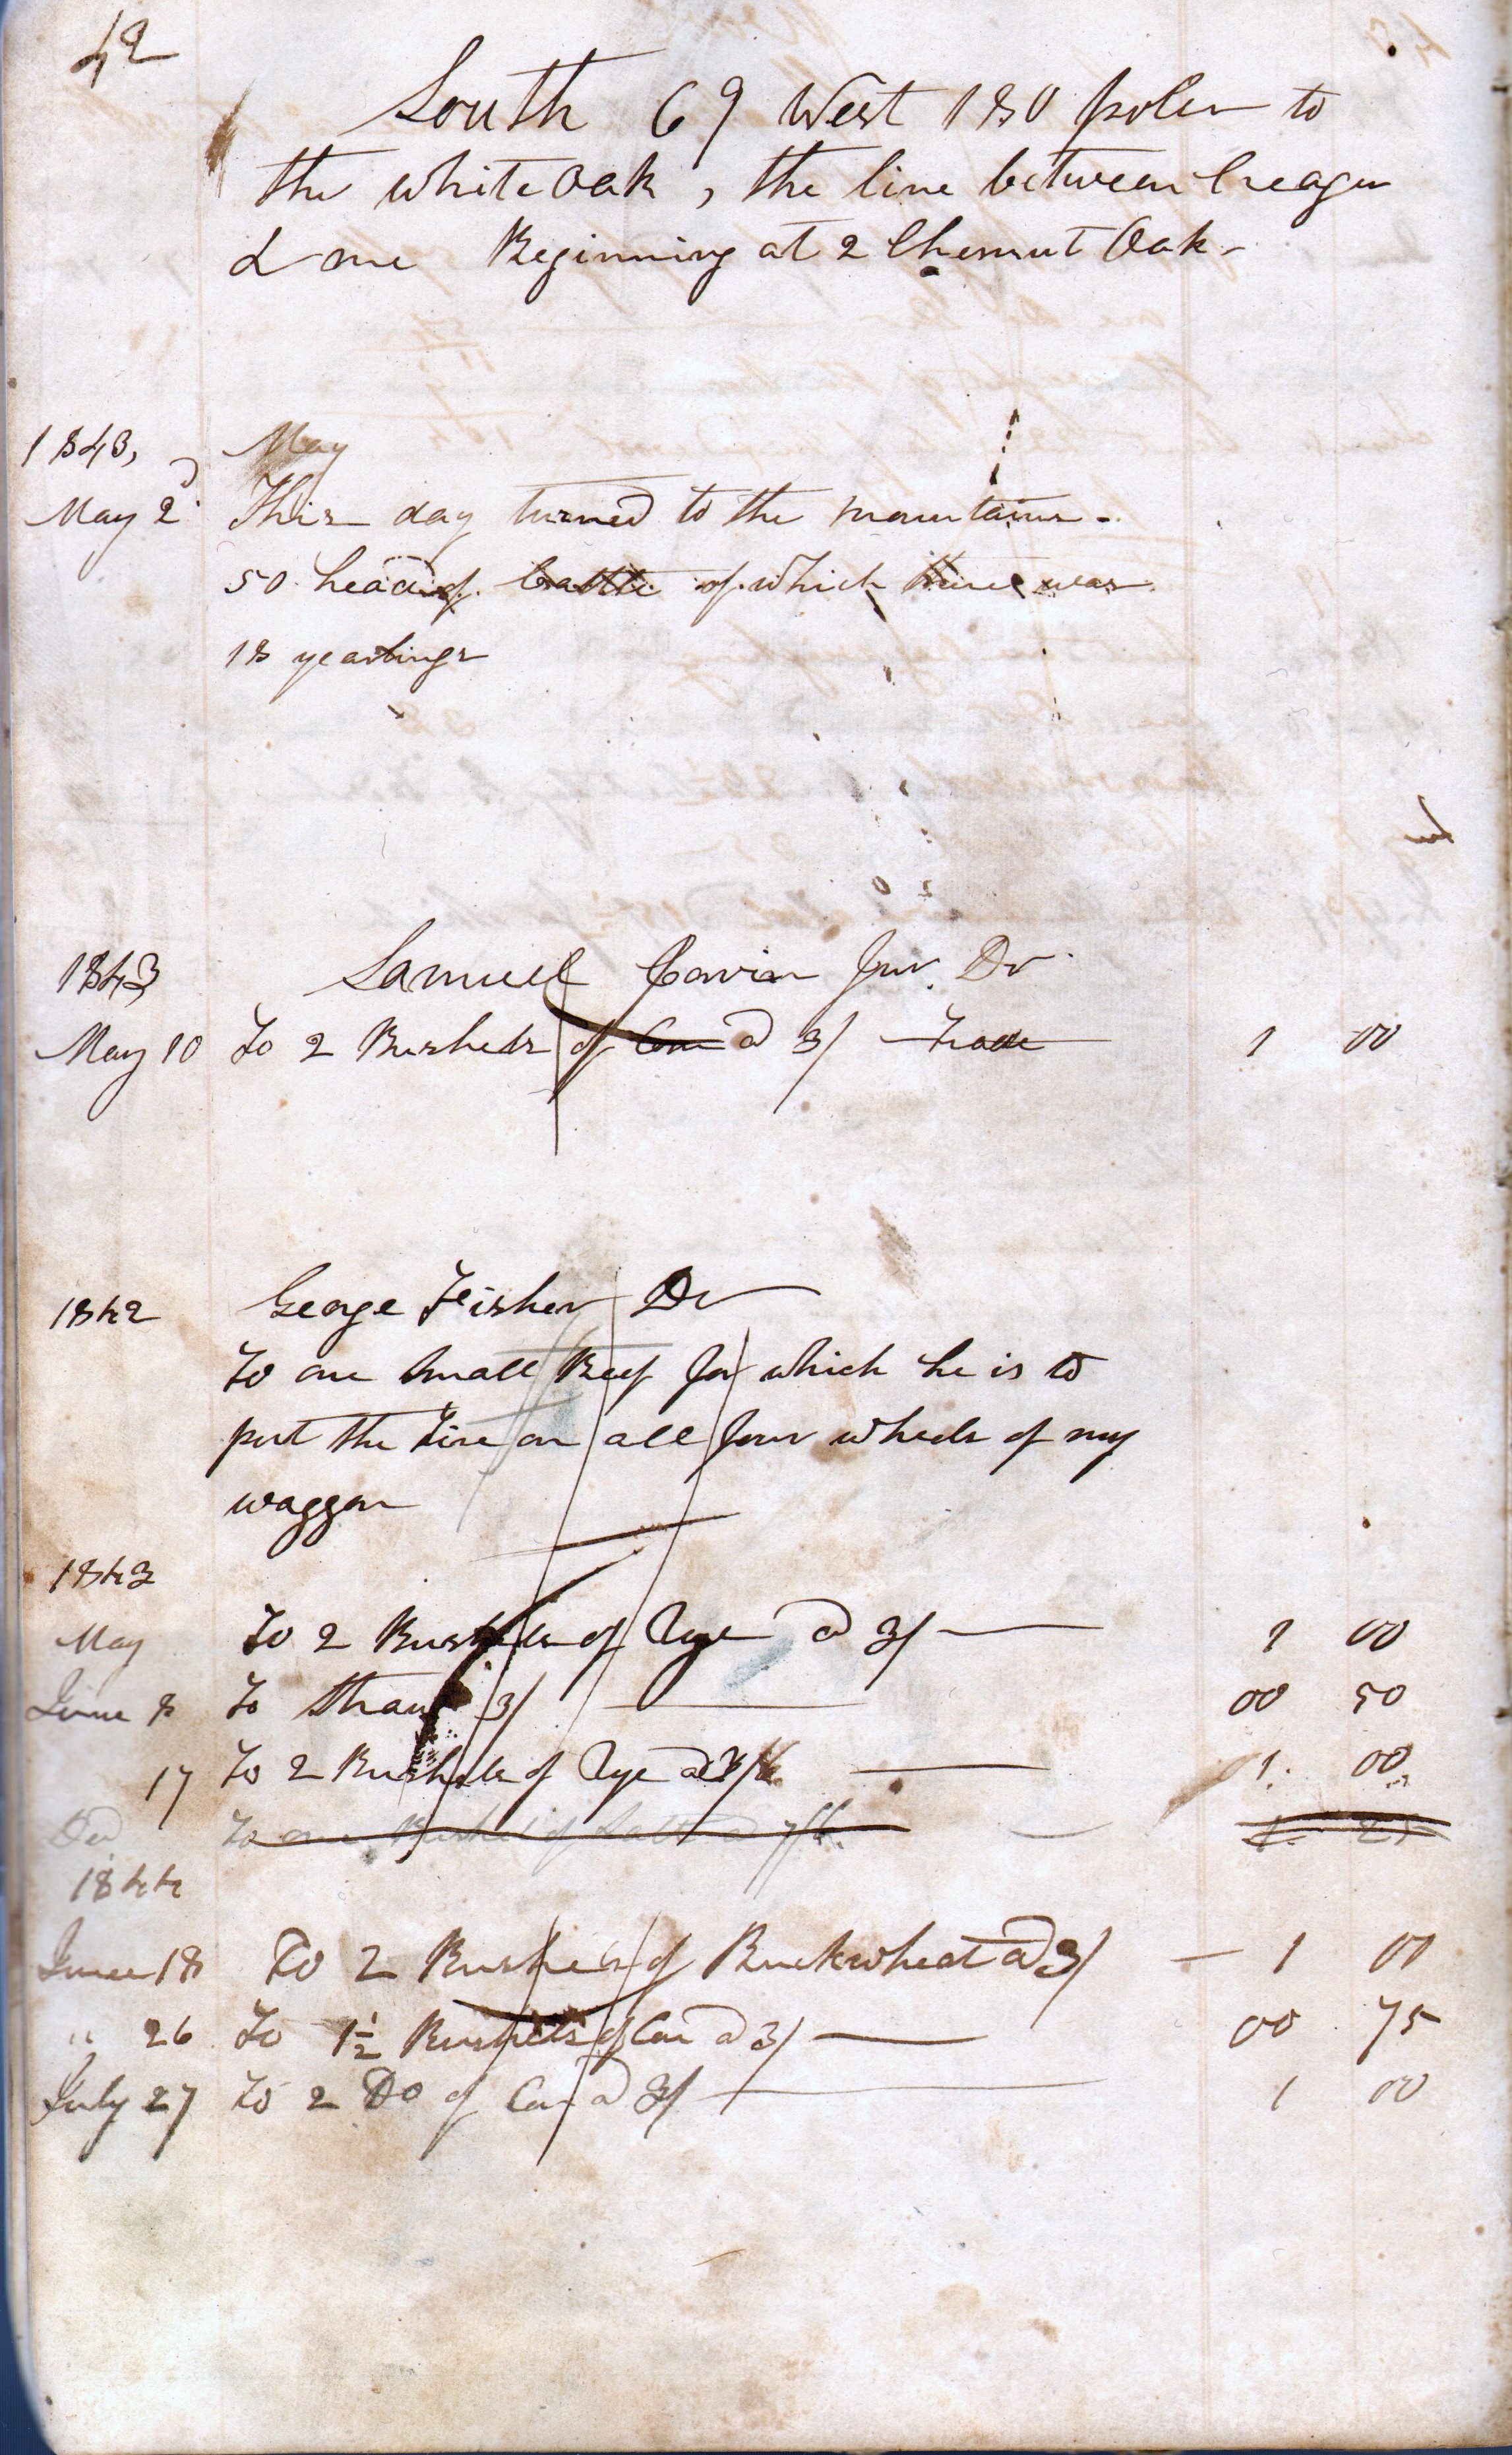 42
South 69 West 180 poles to
the white Oak, the line between Creager
& me Beginning at 2 Chesnut Oak
1843, May
May 2d This day turned to the mountains -
50 head of Cattle of which there was
18 yearlings
1843 Samuel Jun. Dr
May 10 To 2 Bushels of Corn a 3/ Trade 1 00
1842 George Feisher Dr
To one Small Beef for which he is to
put the Tire on all four wheels of my
waggon
1843
May To 2 Bushels of Rye a 3/ 1 00
June 8 To Straw 3/ 00 50
17 To 2 Bushels of Rye a 3/ 01. 00
Dec To one Bushel of Salt a 7/6 1. 25
1844
June 18 To 2 Bushels of Buckwheat a 3/ 1 00
" 26 To 1½ Bushels of Corn a 3/ 00 75
July 27 To 2 Do of Corn a 3/ 1 00